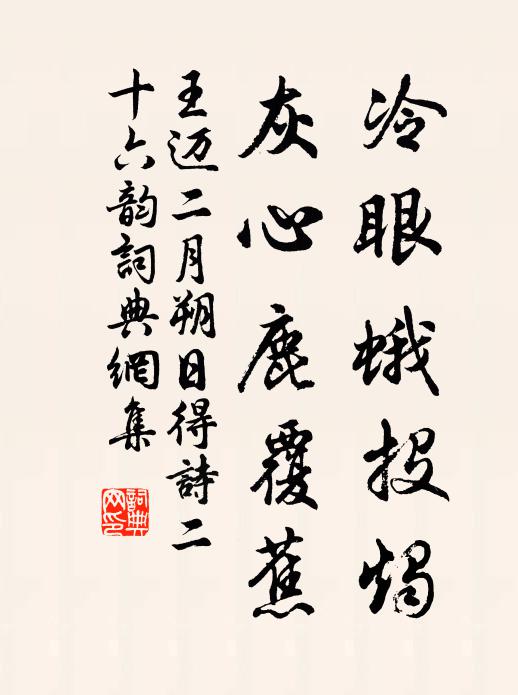 冷眼蛾投烛
灰心鹿覆蕉
王迈二月朔日得詩二
十六韵詞典網集
詞典网印